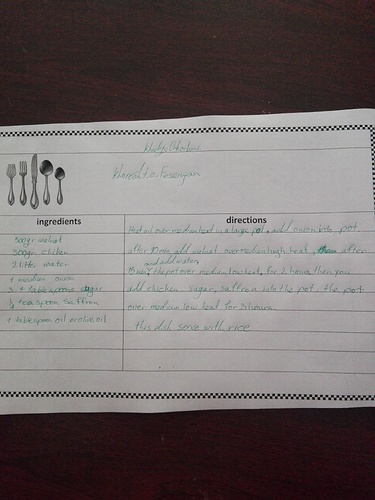 Khoresht-e Fesenjan
ingredients
directions
500gr walnut
500gr chiken
2 Liter water
1 medium onion
3, 4 tablespoons sugar
1/2 teaspoon saffron
1 tablespoon oil or olive oil
Heat oil over medium heat in a large pot, add onion into pot.
after 10 min add walnut over medium high heat, after
and add water,
15 min the pot over medium low heat, for 2 hours then you
add chicken sugar, saffron into the pot. the pot
over medium low heat for 3 hours.
this dish serve with rice